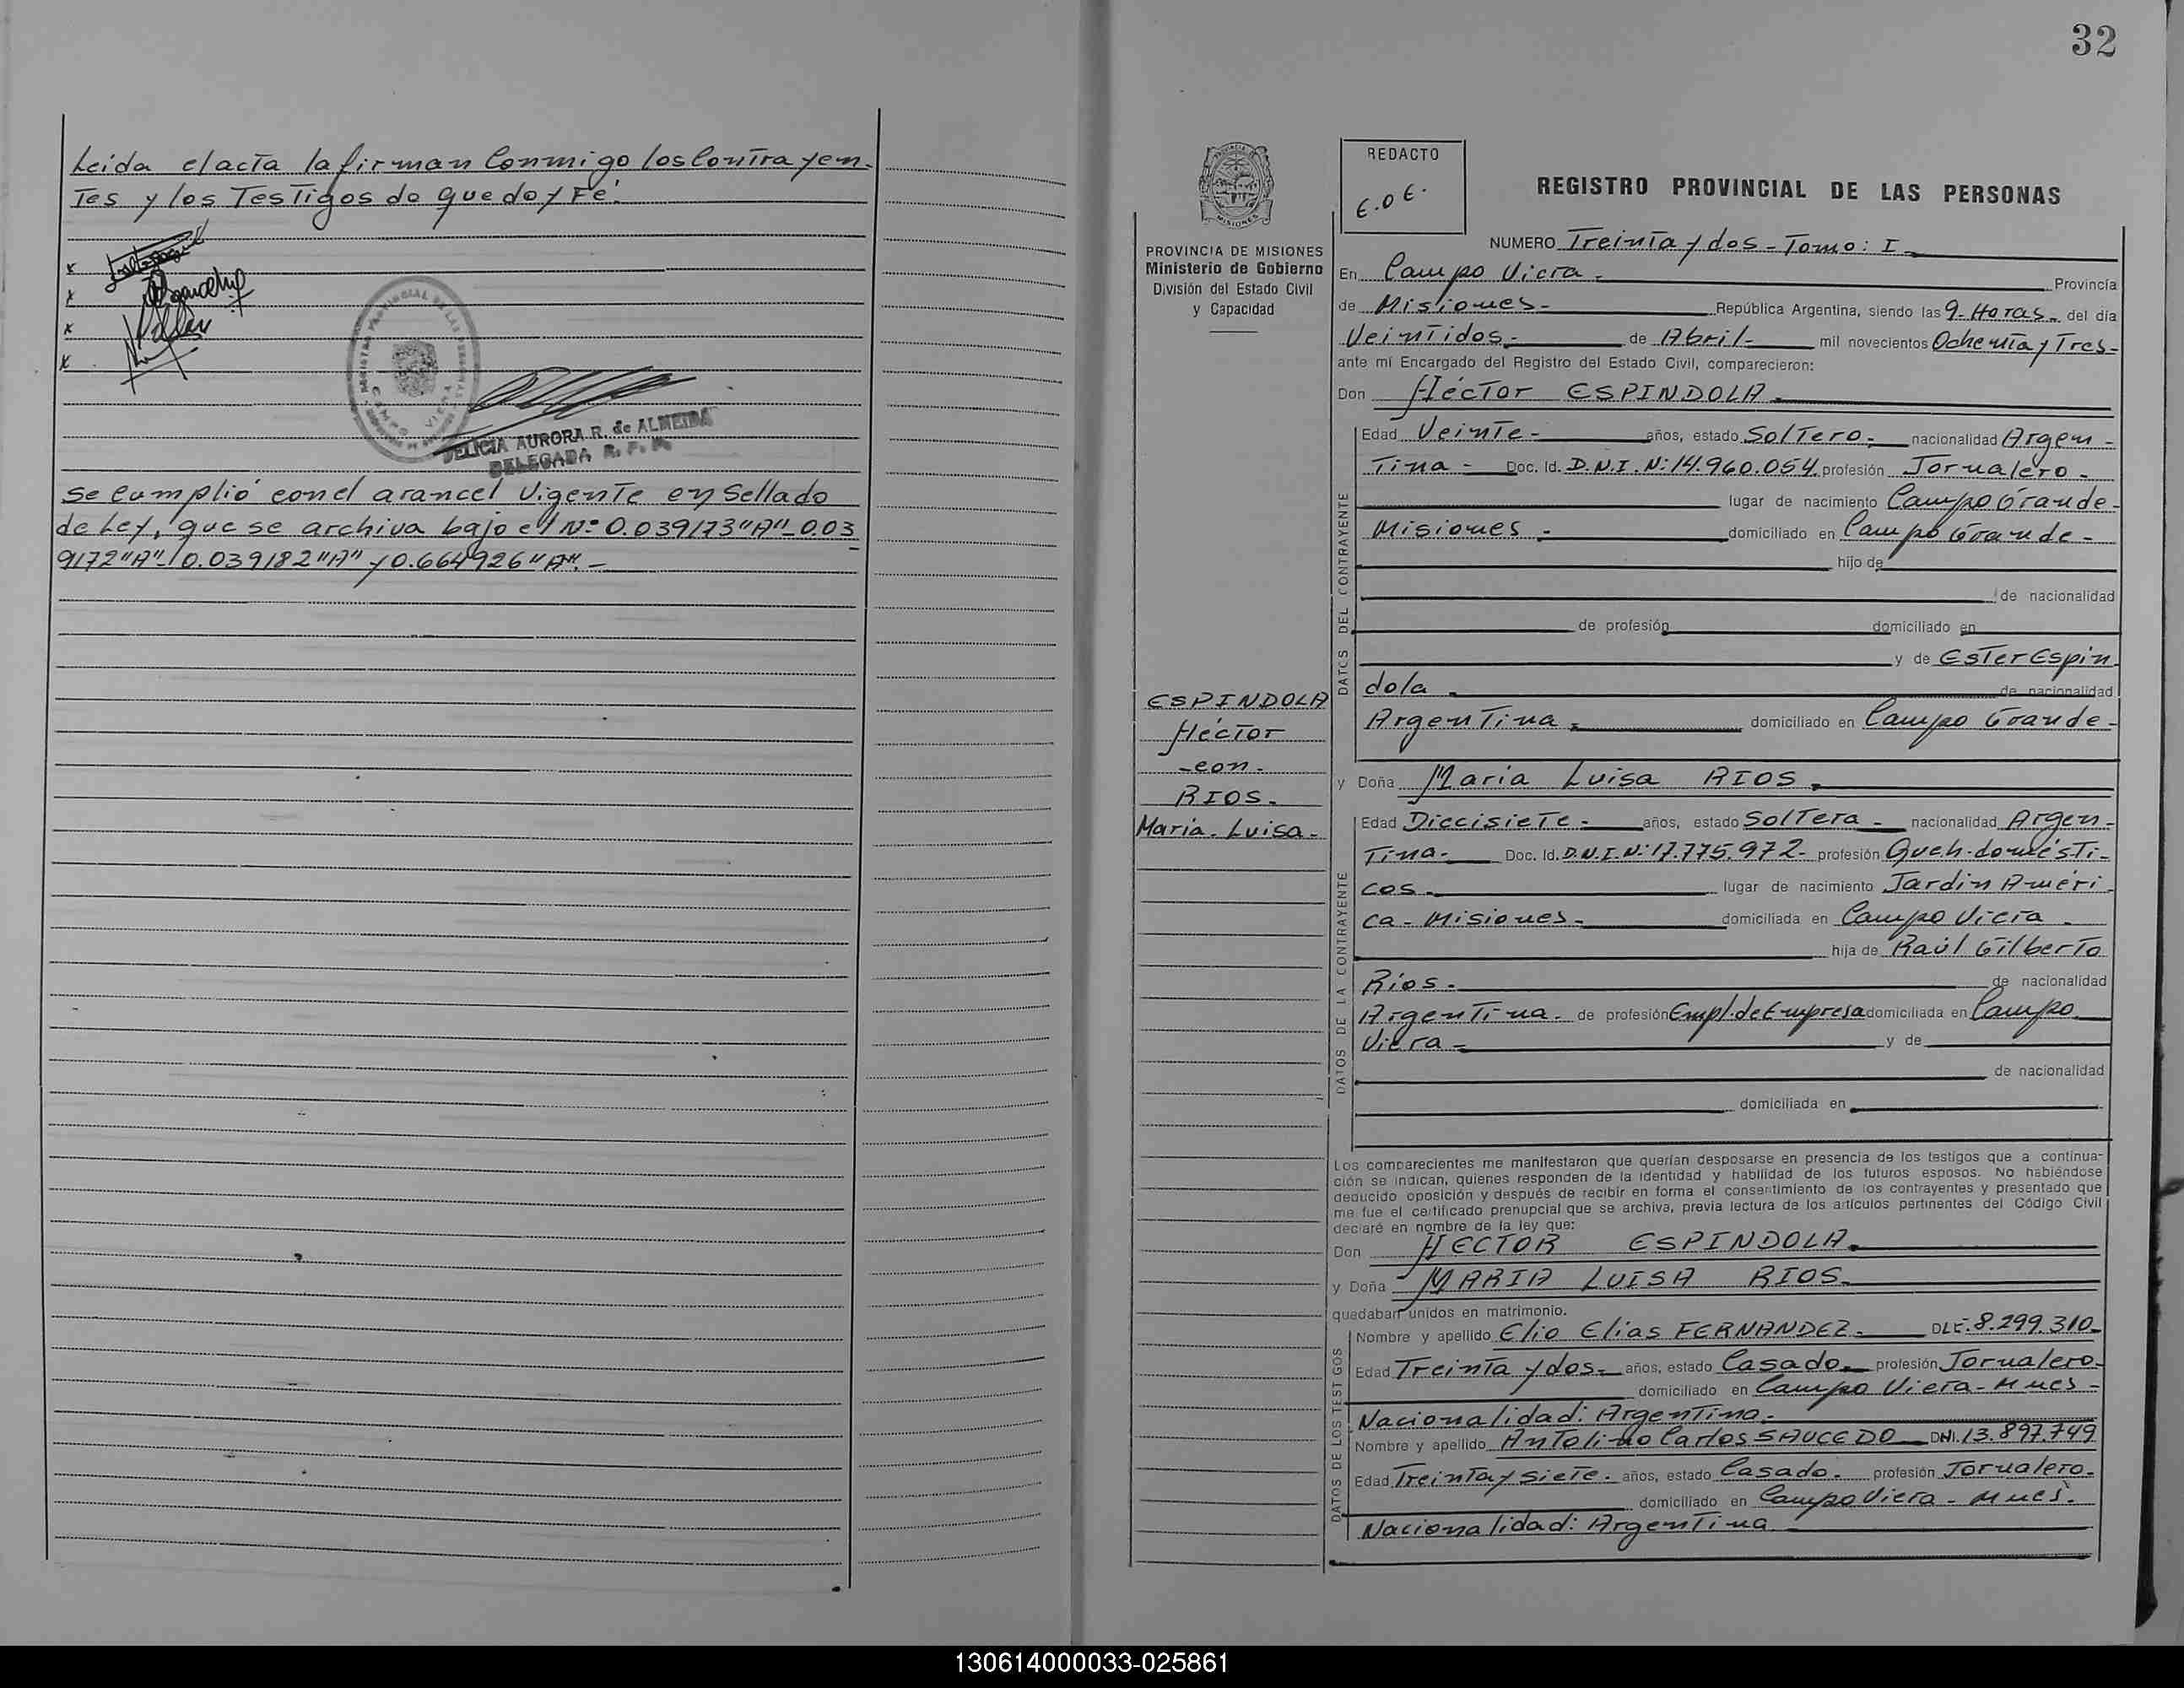 Leida el acta la firman Conmigo los Contrayen-
tes y los Testigos do que doy Fé.
DELICIA AURORA R. de ALMEIDA
DELEGADA R. P. P.
Se Cumplió con el arancel Vigente en Sellado
de Ley, que se archiva bajo el Nº 0.039173"A"-0.03
9172"A"-/0.039182"A" y 0.664926"A".-
32
PROVINCIA DE MISIONES
Ministerio de Gobierno
División del Estado Civil
y Capacidad
ESPINDOLA
Héctor
-con-
RIOS.
María-Luisa-
REDACTO
E.O.E.
REGISTRO PROVINCIAL DE LAS PERSONAS
NUMERO Treinta y dos - Tomo: I.-
En Campo Viera.- Provincia
de Misiones- República Argentina, siendo las 9-Horas- del día
Veintidos.- de Abril- mil novecientos Ochenta y Tres-
ante mí Encargado del Registro del Estado Civil, comparecieron:
Don Héctor ESPINDOLA.-
DATOS DEL CONTRAYENTE
Edad Veinte- años, estado Soltero.- nacionalidad Argen-
tina- Doc. Id. D.N.I.N:14.960.054 profesión Jornalero-
lugar de nacimiento Campo Grande-
Misiones- domiciliado en Campo Grande-
hijo de
de nacionalidad
de profesión domiciliado en
y de Ester Espin
dola.- de nacionalidad
Argentina.- domiciliado en Campo Grande-
y Doña María Luisa RIOS.-
DATOS DE LA CONTRAYENTE
Edad Diecisiete- años, estado Soltera- nacionalidad Argen-
tina.- Doc. Id. D.N.I.N:17.775.972- profesión Queh.domésti-
cos.- lugar de nacimiento Jardín Améri-
ca-Misiones- domiciliada en Campo Viera-
hija de Raúl Gilberto
Ríos.- de nacionalidad
Argentina- de profesión Empl.de Empresa domiciliada en Campo
Viera- y de
de nacionalidad
domiciliada en
Los comparecientes me manifestaron que querían desposarse en presencia de los testigos que a continua-
ción se indican, quienes responden de la identidad y habilidad de los futuros esposos. No habiéndose
deducido oposición y después de recibir en forma el consentimiento de los contrayentes y presentado que
me fue el certificado prenupcial que se archiva, previa lectura de los artículos pertinentes del Código Civil
declaré en nombre de la ley que:
Don HECTOR ESPINDOLA.-
y Doña MARIA LUISA RIOS-
quedaban unidos en matrimonio.
DATOS DE LOS TESTIGOS
Nombre y apellido Elio Elias FERNANDEZ- DLE.8.299.310-
Edad Treinta y dos- años, estado Casado- profesión Jornalero-
domiciliado en Campo Viera-Mnes-
Nacionalidad: Argentina.-
Nombre y apellido Antolino Carlos SAUCEDO- DNI.13.897.749
Edad Treinta y siete- años, estado Casado- profesión Jornalero-
domiciliado en Campo Viera-Mnes.
Nacionalidad: Argentina-
130614000033-025861